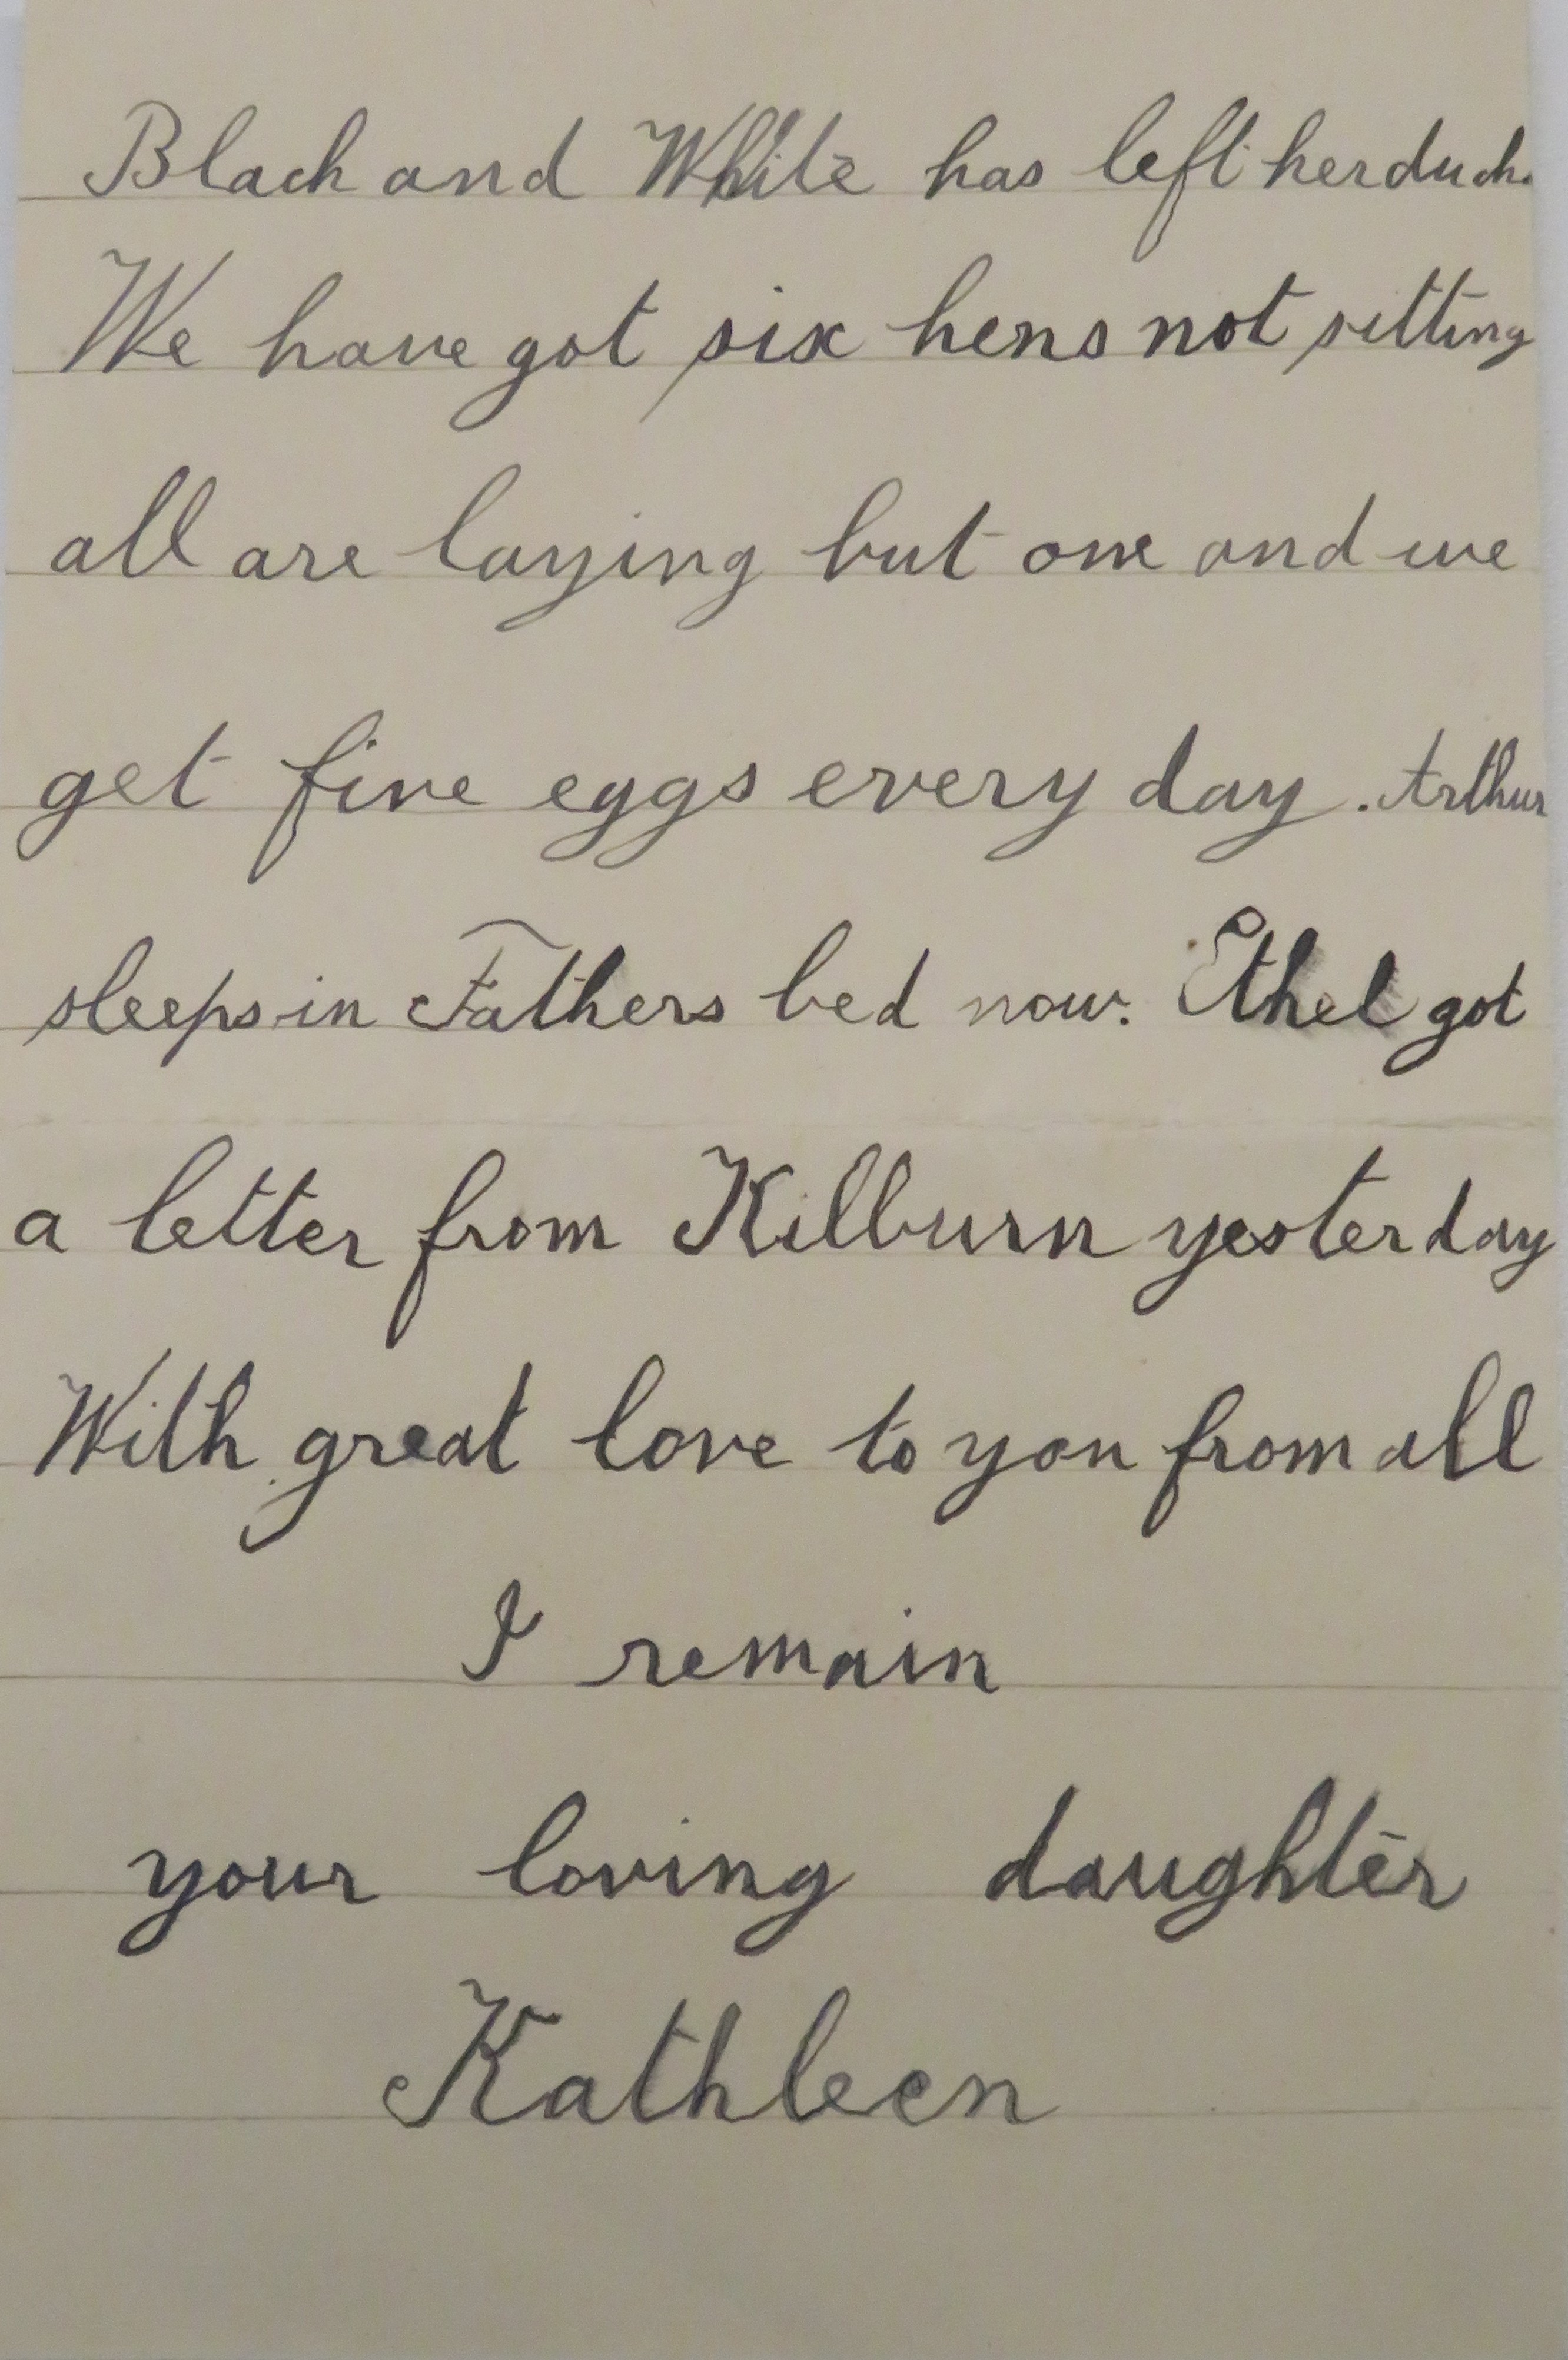 Black and White has left her duck.
We have got six hens not sitting
all are laying but one and we
get five eggs every day. Arthur
sleeps in Fathers bed now. Ethel got
a letter from Kilburn yesterday
With great love to you from all
I remain
your loving daughter
Kathleen